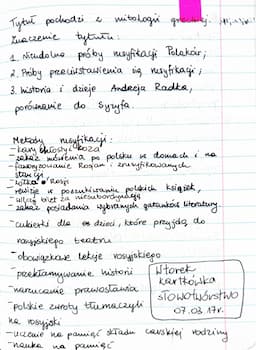 Tytuł pochodzi z mitologii greckiej.
Znaczenie tytułu:
1. Nieudolne próby rusyfikacji Polaków;
2. Próby przeciwstawienia się rusyfikacji;
3. historia i dzieje Andrzeja Radka,
porównanie do Syzyfa.
Metody rusyfikacji:
- kary chłosty, koza
- zakaz mówienia po polsku w domach i na
stancji
- faworyzowanie Rosjan i zrusyfikowanych
- rewizje w poszukiwaniu polskich książek,
- wilczy bilet za nieposłuszeństwo
- zakaz posiadania wybranych gatunków literatury
- cukierki dla dzieci, które przyjdą do
rosyjskiego teatru
- obowiązkowe lekcje rosyjskiego
- przekłamywanie historii
narzucanie prawosławia
- polskie zwroty tłumaczyli
na rosyjski
- uczenie na pamięć składu carskiej rodziny
- nauka na pamięć
Wtorek
kartkówka
słowotwórstwo
07.03.17r.